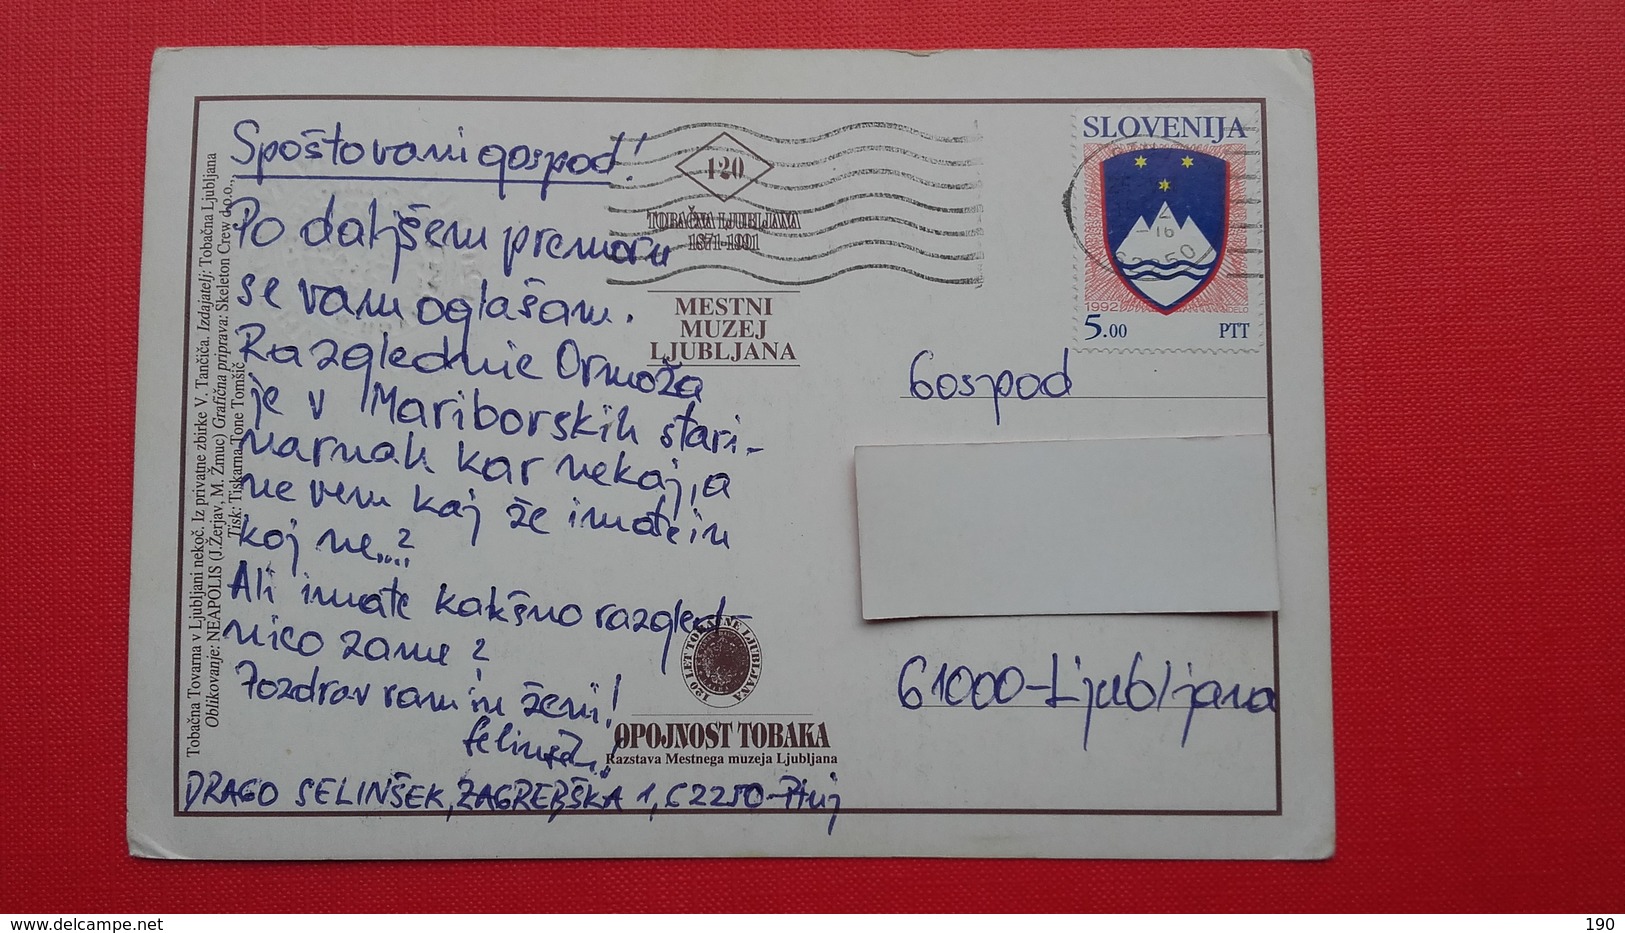 Spoštovani gospod!
Po daljšem premoru
se vam oglašam.
Razglednic Ormoža
je v Mariborskih stari-
narnah kar nekaj, a
ne vem kaj že imate in
kaj ne...?
Ali imate kakšno razgled-
nico zame?
Pozdrav vam in ženi!
Selinšek!
DRAGO SELINŠEK, ZAGREBŠKA 1, 62250-Ptuj
Tobačna Tovarna v Ljubljani nekoč. Iz privatne zbirke V. Tančiča. Izdajatelj: Tobačna Ljubljana
Oblikovanje: NEAPOLIS (J.Žerjav, M. Žmuc) Grafična priprava: Skeleton Crew d.o.o.,
Tisk: Tiskarna Tone Tomšič
120
TOBAČNA LJUBLJANA
1871-1991
MESTNI
MUZEJ
LJUBLJANA
120 LET TOBAČNE LJUBLJANA
OPOJNOST TOBAKA
Razstava Mestnega muzeja Ljubljana
SLOVENIJA
1992
DELO
5.00 PTT
2
-16
62250
Gospod
61000-Ljubljana
delcampe.net
190